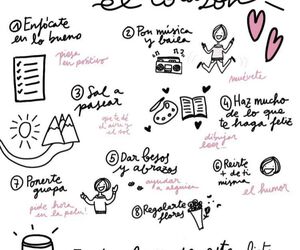 el corazón
① Enfócate
en lo bueno
piensa
en positivo
② Pon música
y baila
muévete
③ Sal a
pasear
que te dé
el aire y
el sol
④ Haz mucho
de lo que
te haga feliz
dibujar
leer!
⑤ Dar besos
y abrazos
ayudar
a alguien
⑥ Reírte
+ de ti
misma
el humor
⑦ Ponerte
guapa
pide hora
en la pelu!
⑧ Regalarte
flores